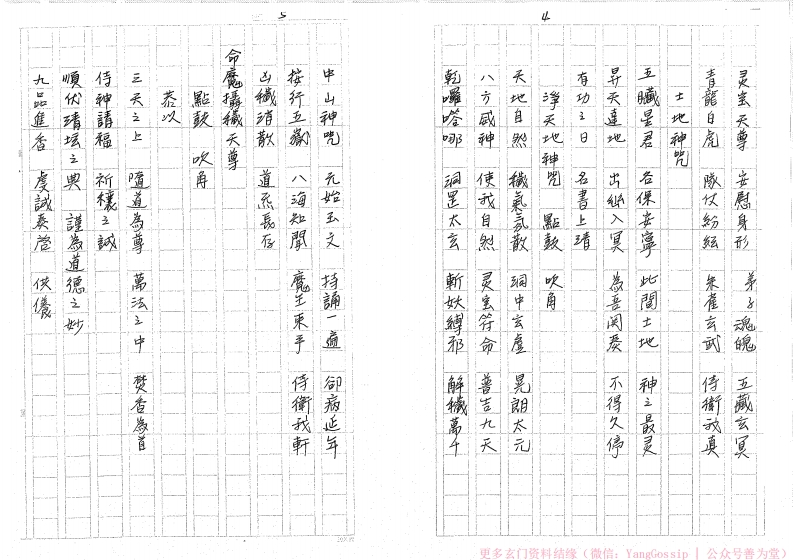 4
灵宝天尊 安慰身形 弟子魂魄 五藏玄冥
青龍白虎 隊仗紛紜 朱雀玄武 侍衛我真
土地神咒
五臟星君 各保安寧 此間土地 神之最灵
昇天達地 出幽入冥 為吾関奏 不得久停
有功之日 名書上清
淨天地神咒 點鼓 吹角
天地自然 穢氣氛散 洞中玄虛 晃朗太元
八方威神 使我自然 灵宝符命 普告九天
乾囉嗒哪 洞罡太玄 斬妖縛邪 解穢萬千
5
中山神咒 元始玉文 持誦一遍 卻病延年
按行五嶽 八海知聞 魔王束手 侍衛我軒
凶穢消散 道炁長存
命魔攝穢天尊
點鼓 吹角
恭以
三天之上 隨道為尊 萬法之中 焚香為首
侍神請福 祈禳之誠
順伏清坛之典 謹為道德之妙
九品進香 虔誠奏啓 供養
更多玄门资料结缘（微信：YangGossip | 公众号善为堂）